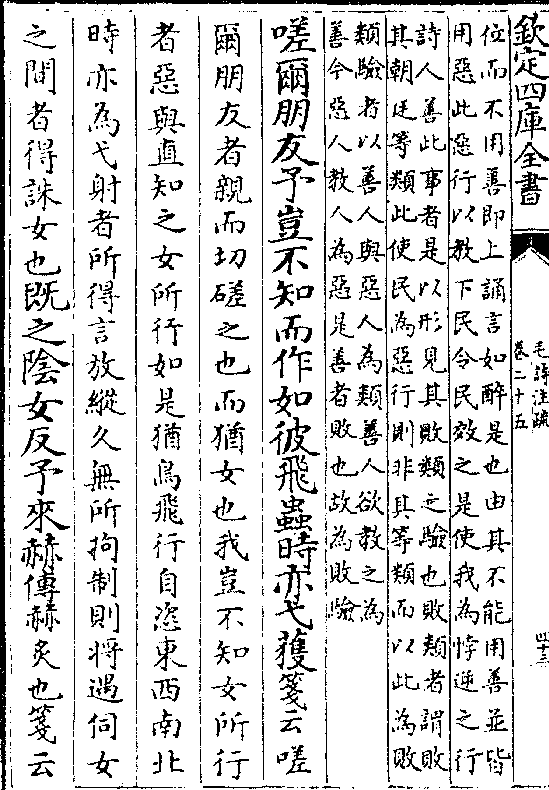 欽定四庫全書
毛詩注疏
卷二十五
四十三
位而不用善即上誦言如醉是也由其不能用善並皆
用惡此惡行以教下民令民效之是使我為悖逆之行
詩人善此事者是以形見其敗類之驗也敗類者謂敗
其朝廷等類此使民為惡行則非其等類而以此為敗
類驗者以善人與惡人為類善人欲教之為
善今惡人教人為惡是善者敗也故為敗驗
嗟爾朋友予豈不知而作如彼飛蟲時亦弋獲箋云嗟
爾朋友者親而切磋之也而猶女也我豈不知女所行
者惡與直知之女所行如是猶鳥飛行自恣東西南北
時亦為弋射者所得言放縱久無所拘制則將遇伺女
之間者得誅女也既之陰女反予來赫傳赫炙也箋云